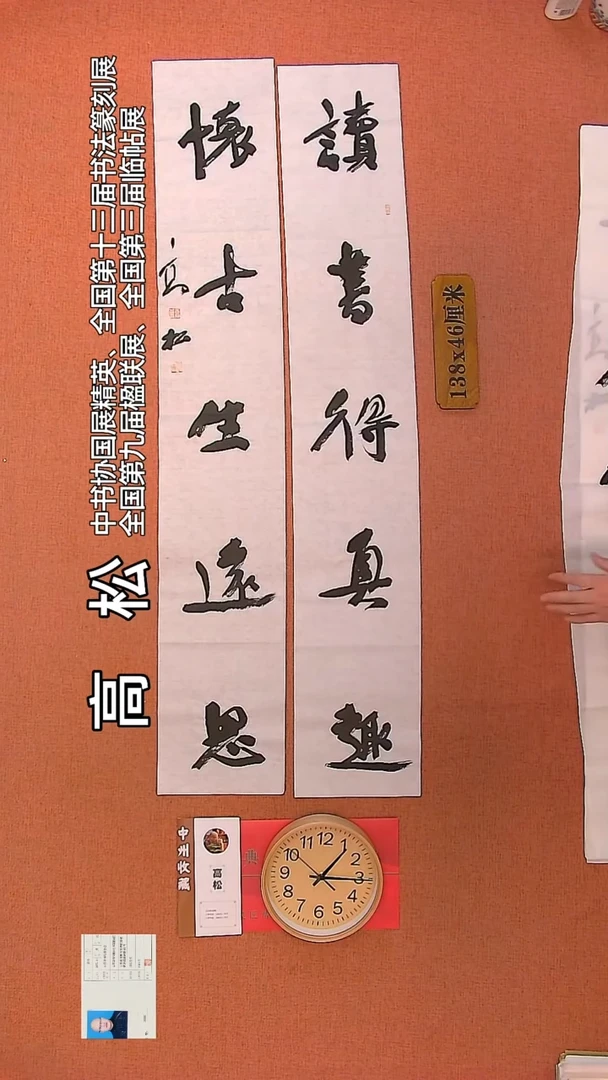 讀書得真趣
懷古生遠思
高松
138x46厘米
高 松
中书协国展精英、全国第十三届书法篆刻展
全国第九届楹联展、全国第三届临帖展
高松
12
1
2
3
4
5
6
7
8
9
10
11